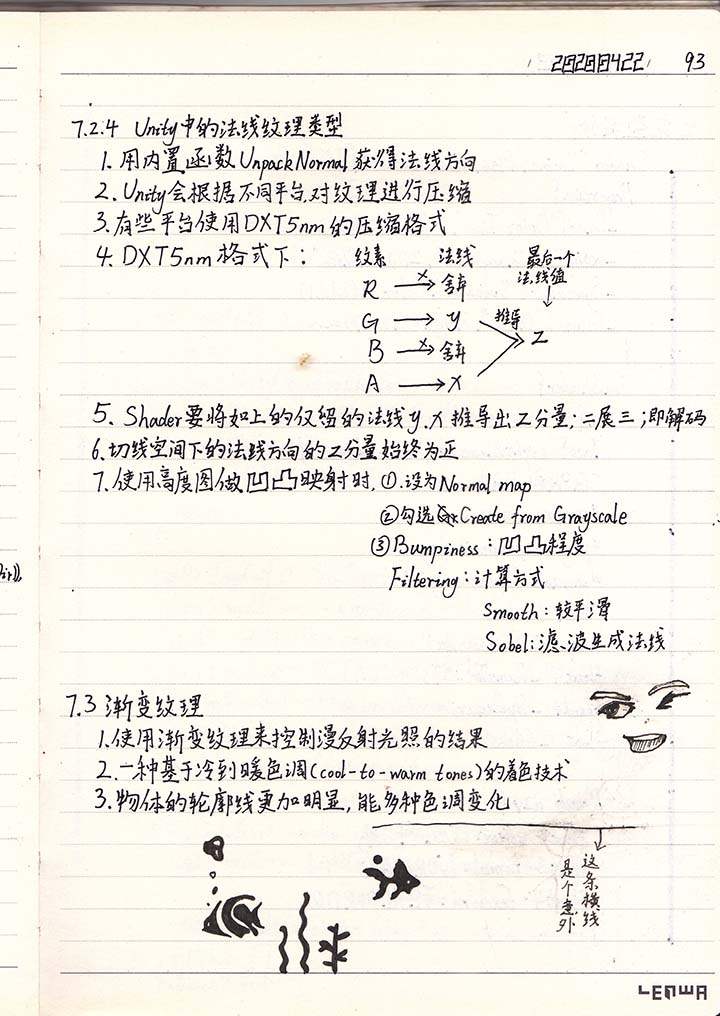 20200422 93
7.2.4 Unity中的法线纹理类型
1. 用内置函数UnpackNormal获得法线方向
2. Unity会根据不同平台,对纹理进行压缩
3. 有些平台使用DXT5nm的压缩格式
4. DXT5nm格式下: 纹素 法线 最后一个
法线值
R x 舍弃
G y 推导 Z
B x 舍弃
A x
5. Shader要将如上的仅留的法线y.x推导出Z分量;二展三;即解码
6. 切线空间下的法线方向的Z分量始终为正
7. 使用高度图做凹凸映射时, ①.设为Normal map
②勾选Create from Grayscale
③Bumpiness:凹凸程度
Filtering:计算方式
Smooth:较平滑
Sobel:滤波生成法线
7.3 渐变纹理
1.使用渐变纹理来控制漫反射光照的结果
2.一种基于冷到暖色调(cool-to-warm tones)的着色技术
3.物体的轮廓线更加明显,能多种色调变化
这条横线
是个意外
LENWA